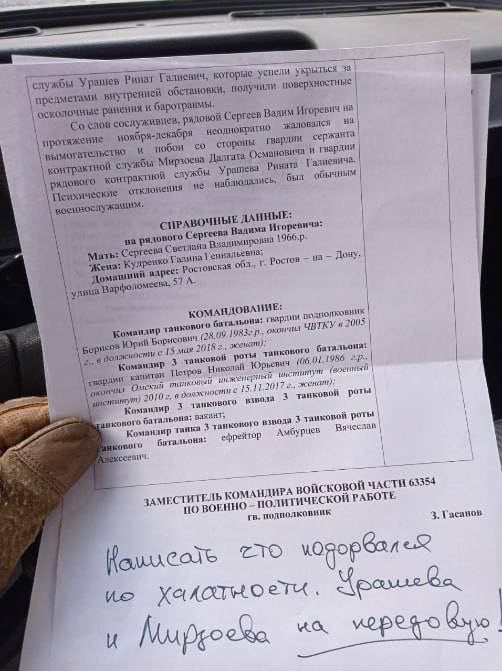 службы Урашев Ринат Галиевич, которые успели укрыться за
предметами внутренней обстановки, получили поверхностные
осколочные ранения и баротравмы.
Со слов сослуживцев, рядовой Сергеев Вадим Игоревич на
протяжение ноября-декабря неоднократно жаловался на
вымогательство и побои со стороны гвардии сержанта
контрактной службы Мирзоева Далгата Османовича и гвардии
рядового контрактной службы Урашева Рината Галиевича.
Психические отклонения не наблюдались, был обычным
военнослужащим.
СПРАВОЧНЫЕ ДАННЫЕ:
на рядового Сергеева Вадима Игоревича:
Мать: Сергеева Светлана Владимировна 1966.р.
Жена: Кулренко Галина Геннальевна;
Домашний адрес: Ростовская обл., г. Ростов – на – Дону,
улица Варфоломеева, 57 А.
КОМАНДОВАНИЕ:
Командир танкового батальона: гвардии подполковник
Борисов Юрий Борисович (28.09.1983г.р., окончил ЧВТКУ в 2005
г., в должности с 15 мая 2018 г., женат);
Командир 3 танковой роты танкового батальона:
гвардии капитан Петров Николай Юрьевич (06.01.1986 г.р.,
окончил Омский танковый инженерный институт (военный
институт) 2010 г, в должности с 15.11.2017 г., женат);
Командир 3 танкового взвода 3 танковой роты
танкового батальона: вакант;
Командир танка 3 танкового взвода 3 танковой роты
танкового батальона: ефрейтор Амбурцев Вячеслав
Алексеевич.
ЗАМЕСТИТЕЛЬ КОМАНДИРА ВОЙСКОВОЙ ЧАСТИ 63354
ПО ВОЕННО – ПОЛИТИЧЕСКОЙ РАБОТЕ
гв. подполковник З. Гасанов
Написать что подорвался
по халатности. Урашева
и Мирзоева на передовую!